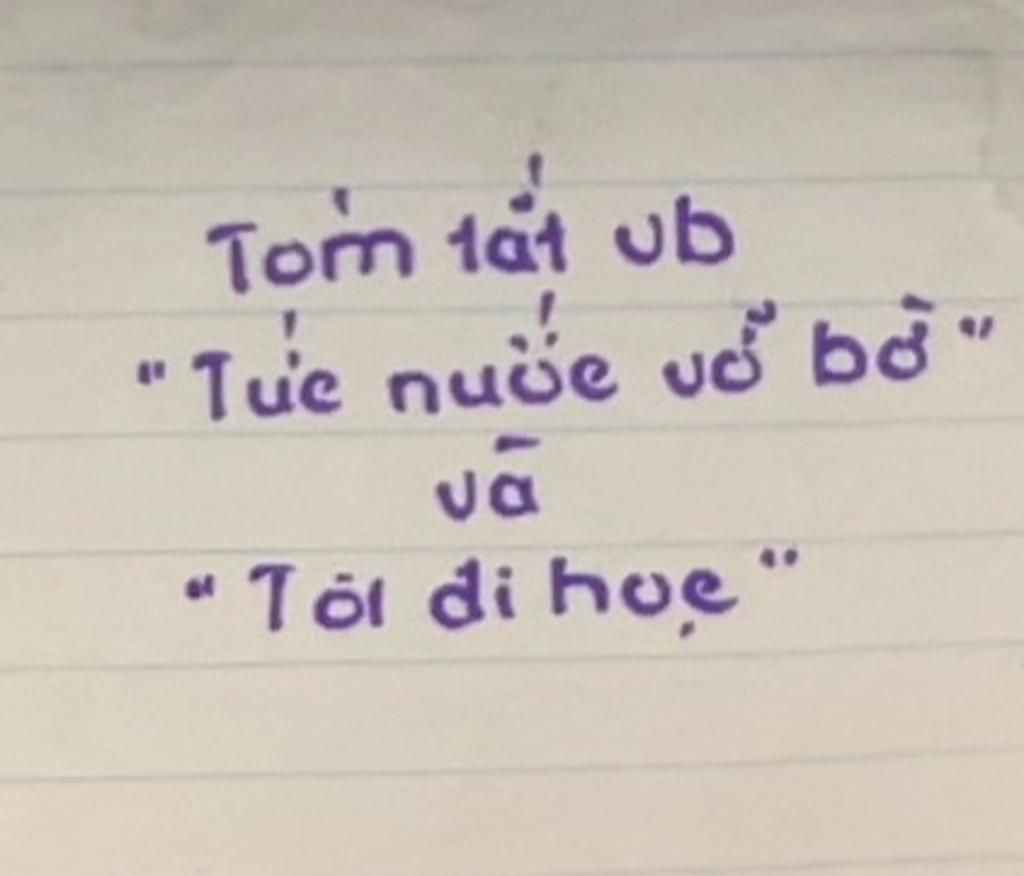 Tóm tắt vb
"Tức nước vỡ bờ"
và
"Tôi đi học"